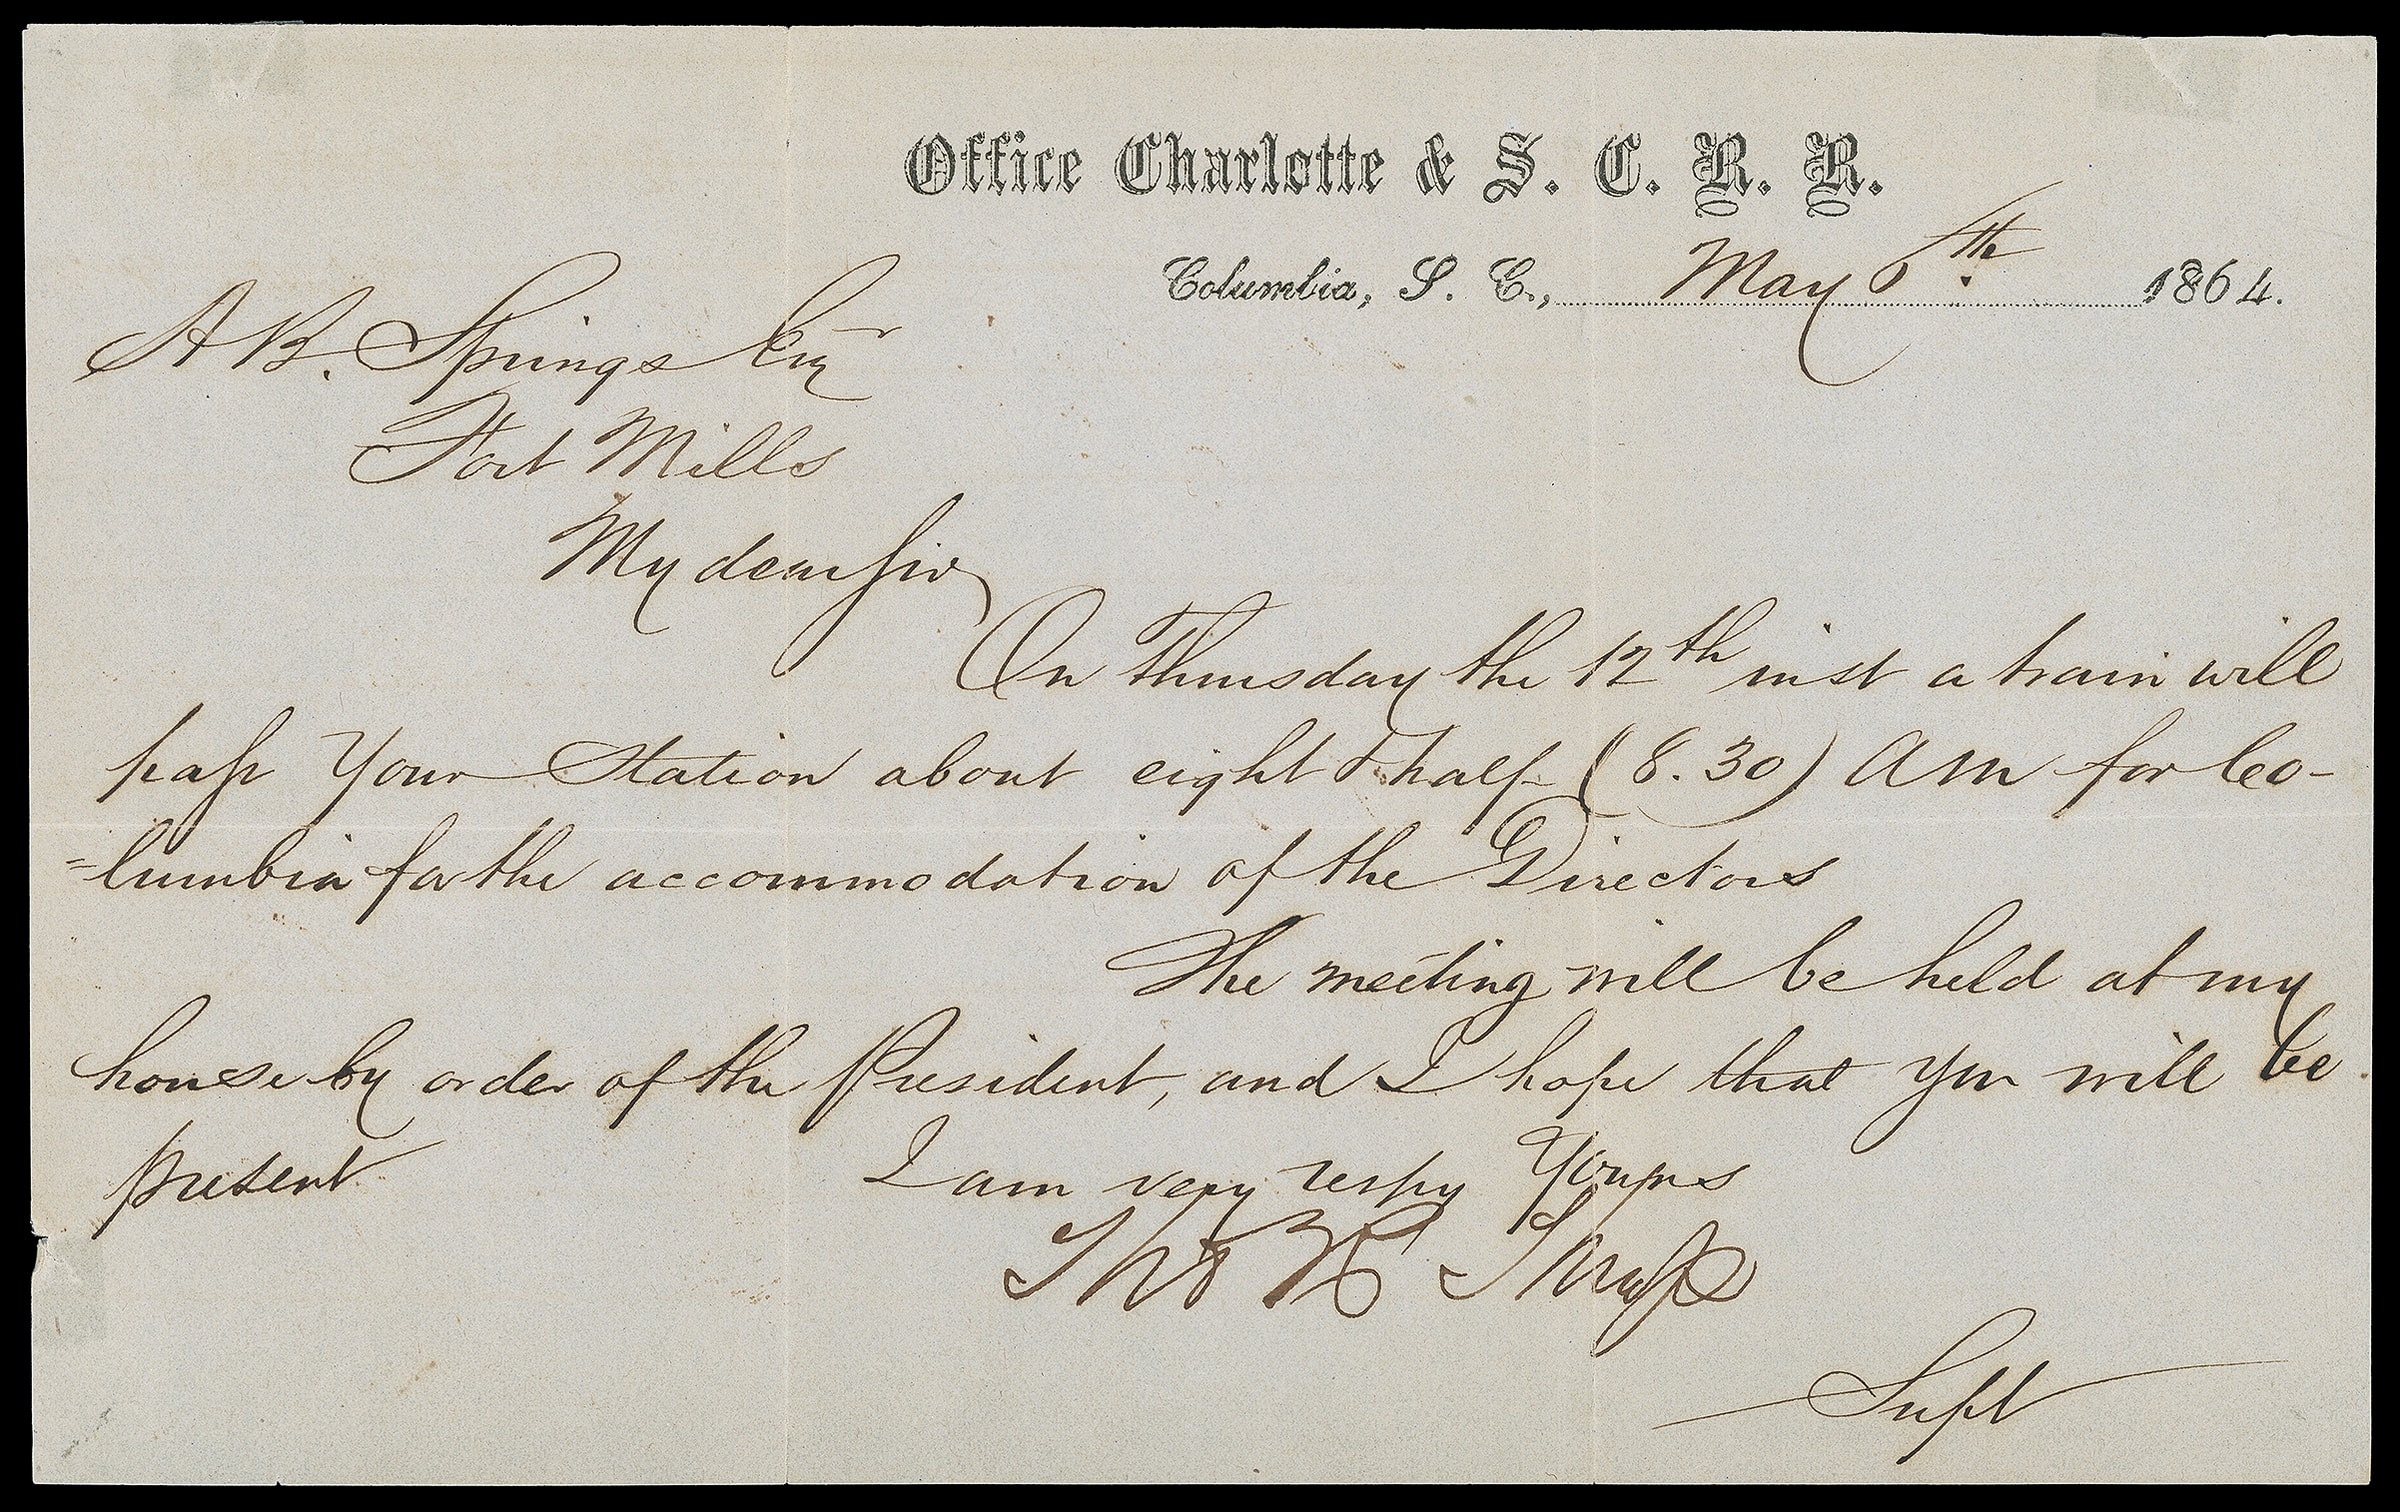 Office Charlotte & S. C. R. R.
Columbia, S. C., May 6th 1864.
A B. Springs Esqr
Fort Mills
My dear Sir
On Thursday the 12th inst a train will
pass Your Station about eight & half (8.30) AM for Co-
=lumbia for the accommodation of the Directors
The meeting will be held at my
house by order of the President, and I hope that You will be
present
I am very respy Yours
Thos
Supt